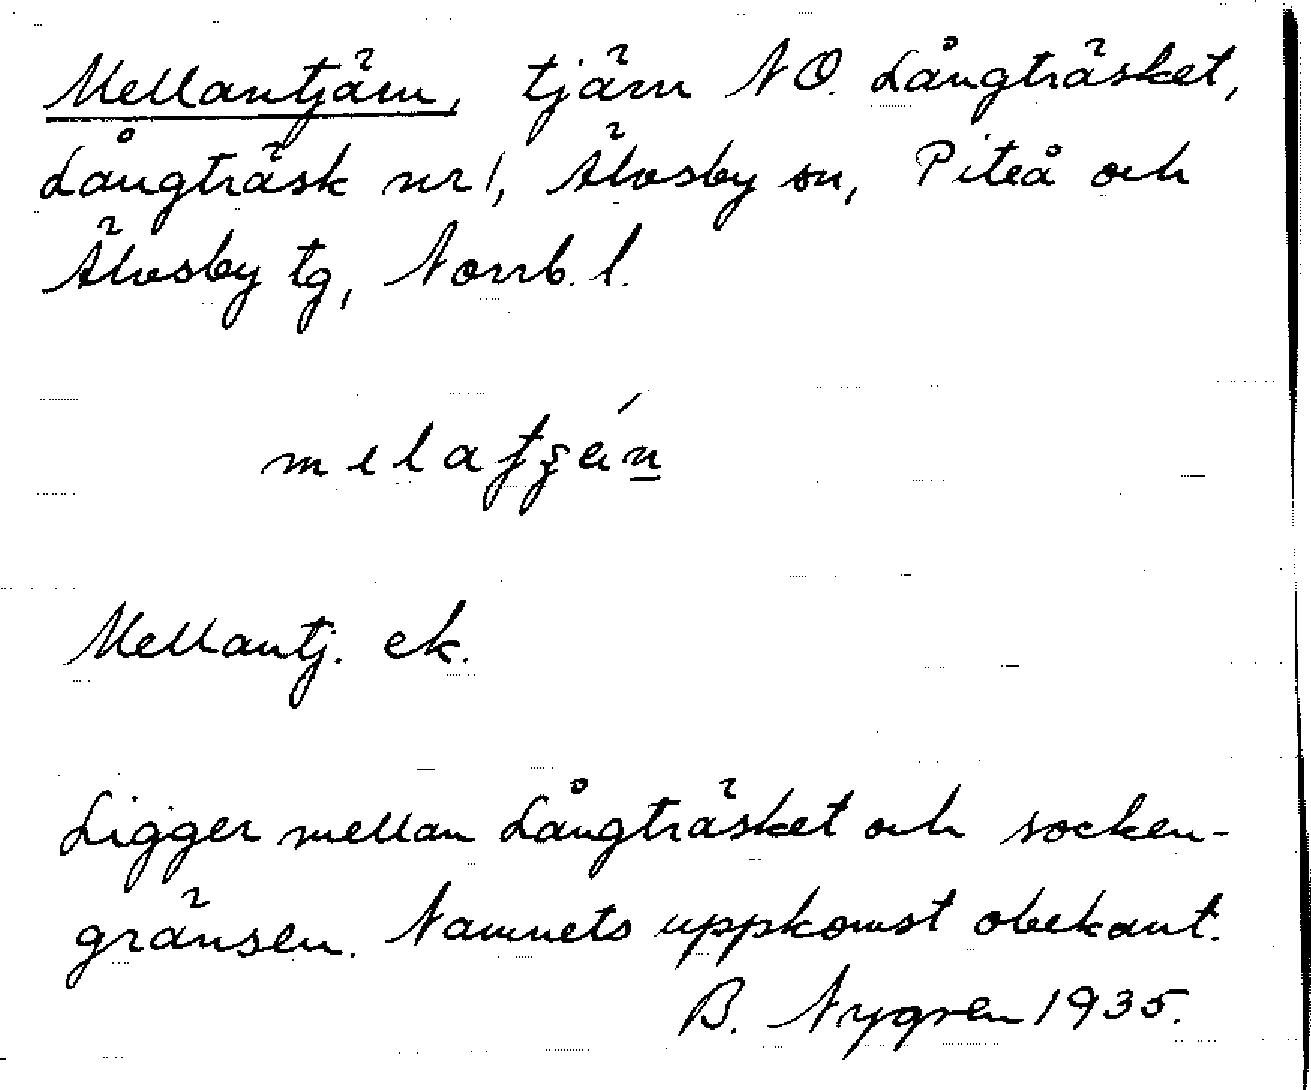 Mellantjärn, tjärn NO. Långträsket,
Långträsk nr 1, Älvsby sn, Piteå och
Älvsby tg, Norrb. l.
Mellantj. ek.
Ligger mellan Långträsket och socken-
gränsen. Namnets uppkomst obekant.
B. Nygren 1935.